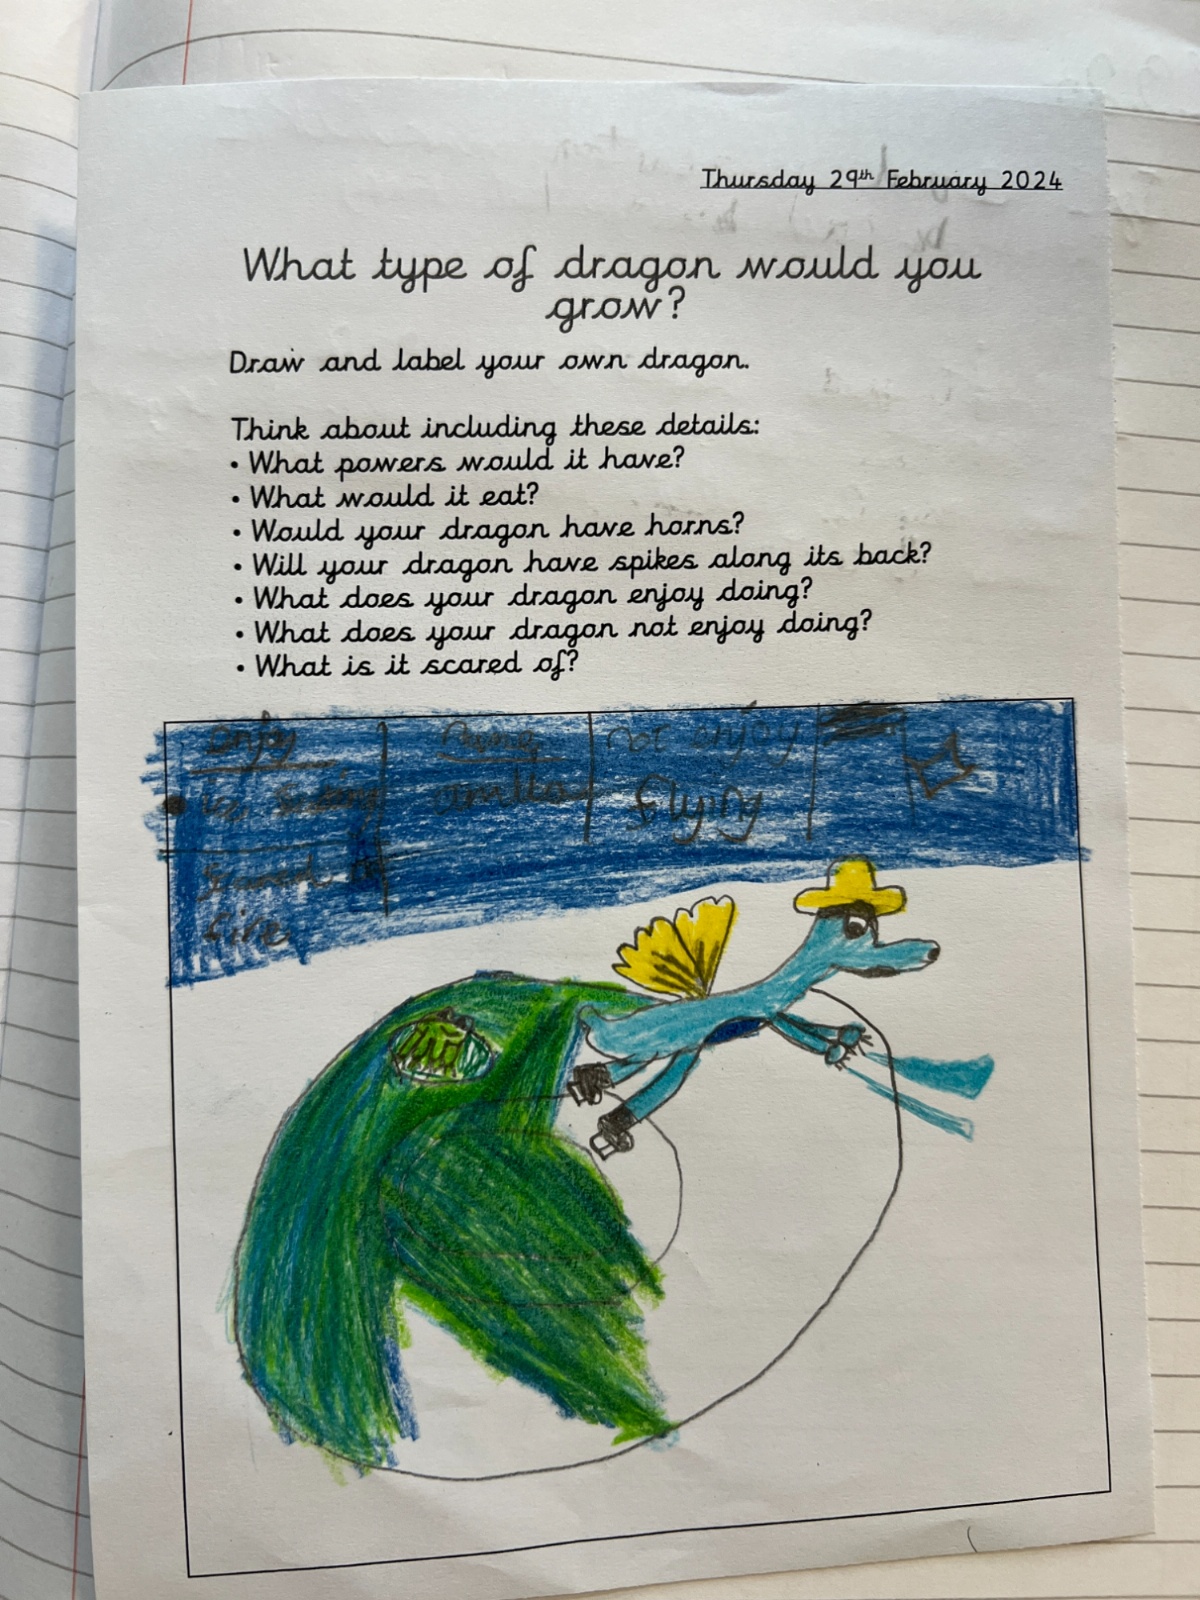 Thursday 29th February 2024
What type of dragon would you
grow?
Draw and label your own dragon.
Think about including these details:
• What powers would it have?
• What would it eat?
• Would your dragon have horns?
• Will your dragon have spikes along its back?
• What does your dragon enjoy doing?
• What does your dragon not enjoy doing?
• What is it scared of?
enjoy
not enjoy
flying
scared
fire